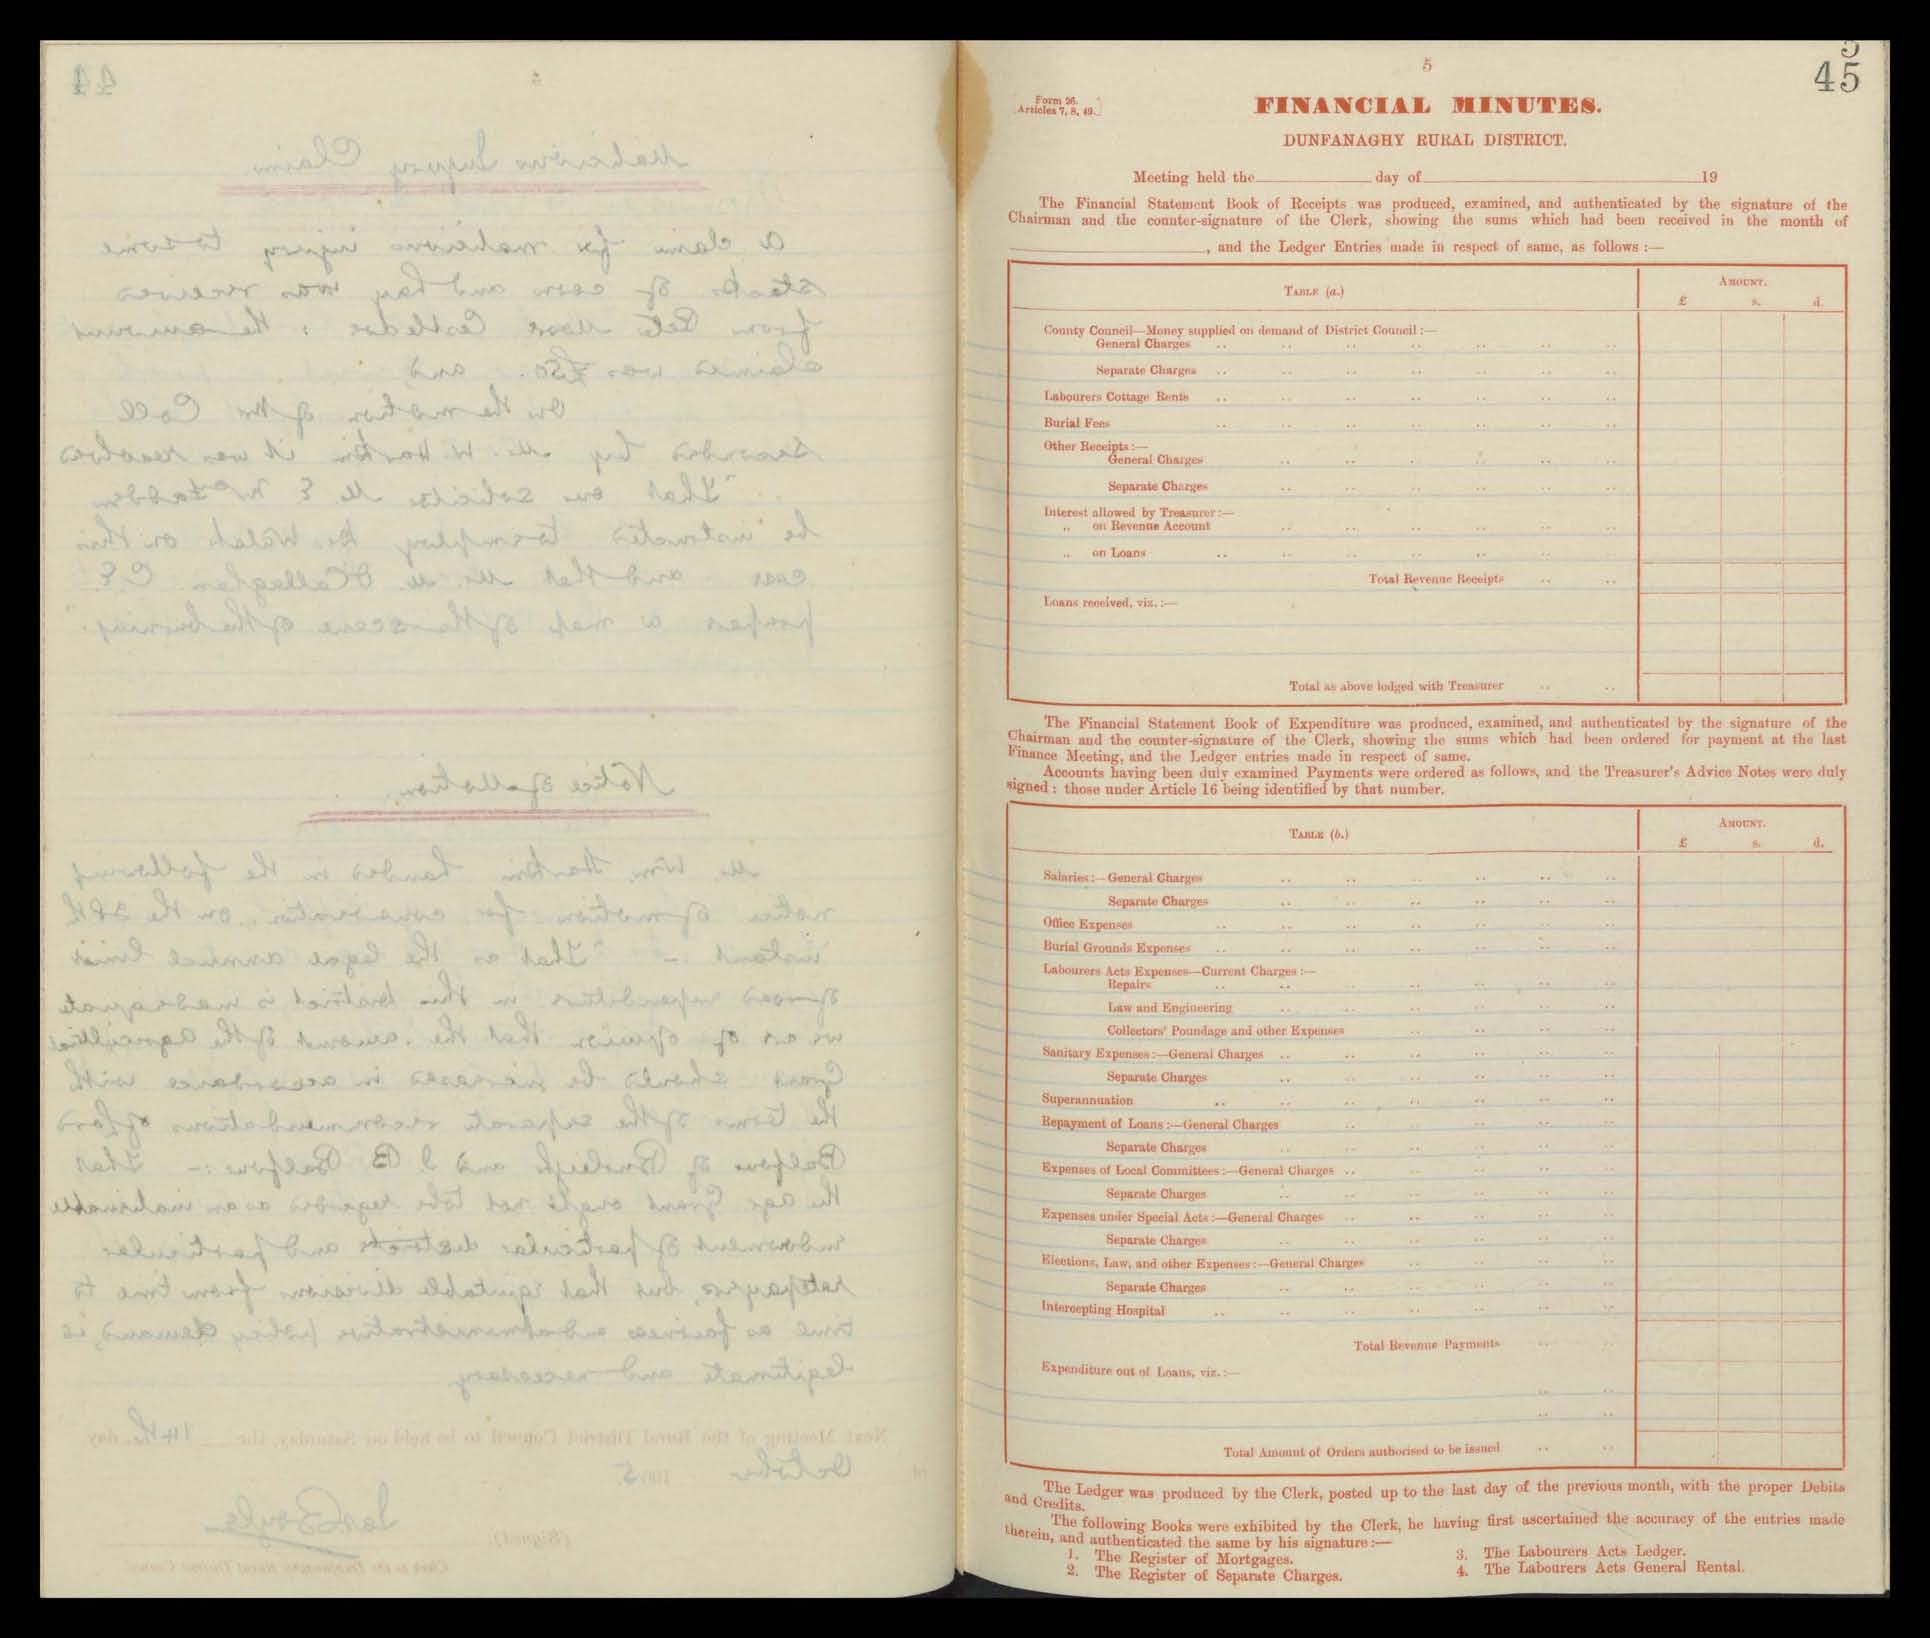 44
4
Malicious Injury Claim
A claim for malicious injury to some
stacks of corn and hay was received
from Moore ; the amount
claimed was £50. and
On the motion of Mr Coll
seconded by Mr. W. Harkin it was resolved
"That our solicitor Mr. E McFadden
be instructed to employ Dr. Walsh on this
case and that Mr. M. O'Callaghan C.E.
prepare a map of the scene of the burning".
Notice of Motion.
Mr. Wm. Harkin handed in the following
notice of motion for consideration on the 28th
instant - "That as the legal annual limit
of road expenditure in the District is inadequate
we are of opinion that the amount of the Agricultural
Grant should be increased in accordance with
the terms of the separate recommendations of Lord
Balfour of Burleigh and J B Balfour :- That
the Agr Grant ought not to be regarded as an inalienable
endowment of particular districts and particular
ratepayers, but that equitable division from time to
time as fairness and administrative policy demand, is
legitimate and necessary
Next Meeting of the Rural District Council to be held on Saturday, the 14th day
of October 1905.
(Signed),
Jas Boyle
Clerk to the Dunfanaghy Rural District Council
5
5
45
Form 26.
Articles 7, 8, 49.
FINANCIAL MINUTES.
DUNFANAGHY RURAL DISTRICT.
Meeting held the day of 19
The Financial Statement Book of Receipts was produced, examined, and authenticated by the signature of the
Chairman and the counter-signature of the Clerk, showing the sums which had been received in the month of
, and the Ledger Entries made in respect of same, as follows :—
TABLE (a.)
AMOUNT.
£ s. d.
County Council—Money supplied on demand of District Council :—
General Charges
Separate Charges
Labourers Cottage Rents
Burial Fees
Other Receipts :—
General Charges
Separate Charges
Interest allowed by Treasurer :—
„ on Revenue Account
„ on Loans
Total Revenue Receipts
Loans received, viz. :—
Total as above lodged with Treasurer
The Financial Statement Book of Expenditure was produced, examined, and authenticated by the signature of the
Chairman and the counter-signature of the Clerk, showing the sums which had been ordered for payment at the last
Finance Meeting, and the Ledger entries made in respect of same.
Accounts having been duly examined Payments were ordered as follows, and the Treasurer's Advice Notes were duly
signed : those under Article 16 being identified by that number.
TABLE (b.)
AMOUNT.
£ s. d.
Salaries :—General Charges
Separate Charges
Office Expenses
Burial Grounds Expenses
Labourers Acts Expenses—Current Charges :—
Repairs
Law and Engineering
Collectors' Poundage and other Expenses
Sanitary Expenses :—General Charges
Separate Charges
Superannuation
Repayment of Loans :—General Charges
Separate Charges
Expenses of Local Committees :—General Charges
Separate Charges
Expenses under Special Acts :—General Charges
Separate Charges
Elections, Law, and other Expenses :—General Charges
Separate Charges
Intercepting Hospital
Total Revenue Payments
Expenditure out of Loans, viz. :—
Total Amount of Orders authorised to be issued
The Ledger was produced by the Clerk, posted up to the last day of the previous month, with the proper Debits
and Credits.
The following Books were exhibited by the Clerk, he having first ascertained the accuracy of the entries made
therein, and authenticated the same by his signature :—
1. The Register of Mortgages.
2. The Register of Separate Charges.
3. The Labourers Acts Ledger.
4. The Labourers Acts General Rental.